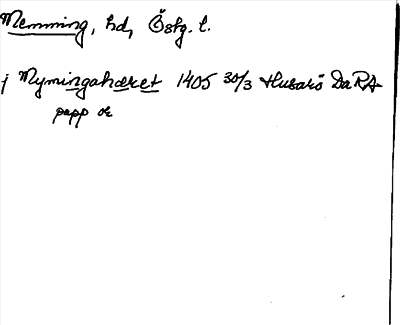 Memming, hd, Östg. l.
j Mymingahæret 1405 30/3 Husarö DaRA
papp or